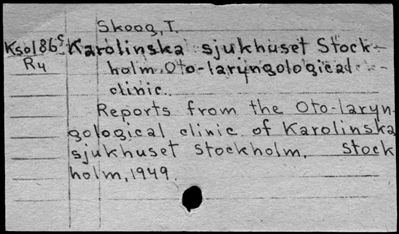 Skoog, T.
Kso186s Karolinska sjukhuset Stock-
Ru holm. Oto-laryngological
clinic.
Reports from the Oto-laryn-
gological clinic of Karolinska
sjukhuset Stockholm. Stock
holm, 1949.